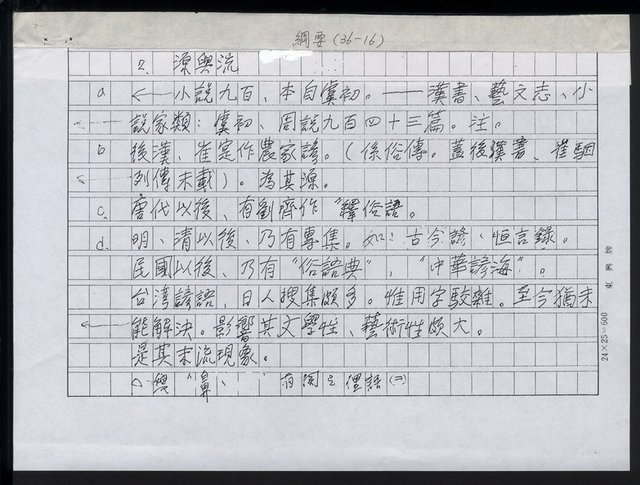 綱要(36-16)
2. 源與流
a ←小說九百、本自虞初。——漢書、藝文志、小
說家類：虞初、周說九百四十三篇。注。
b 後漢、崔寔作農家諺。(係俗傳。蓋後漢書、崔駰
列傳未載)。為其源。
c. 唐代以後、有劉齊作"釋俗語。
d. 明、清以後、乃有專集。如：古今諺、恒言錄。
民國以後、乃有"俗語典"，"中華諺海"。
台灣諺語，日人搜集頗多。惟用字駁雜。至今猶未
能解決。影響其文學性、藝術性頗大。
是其末流現象。
與"鼻、 有関之俚語(二)
東興牌
24×25=600